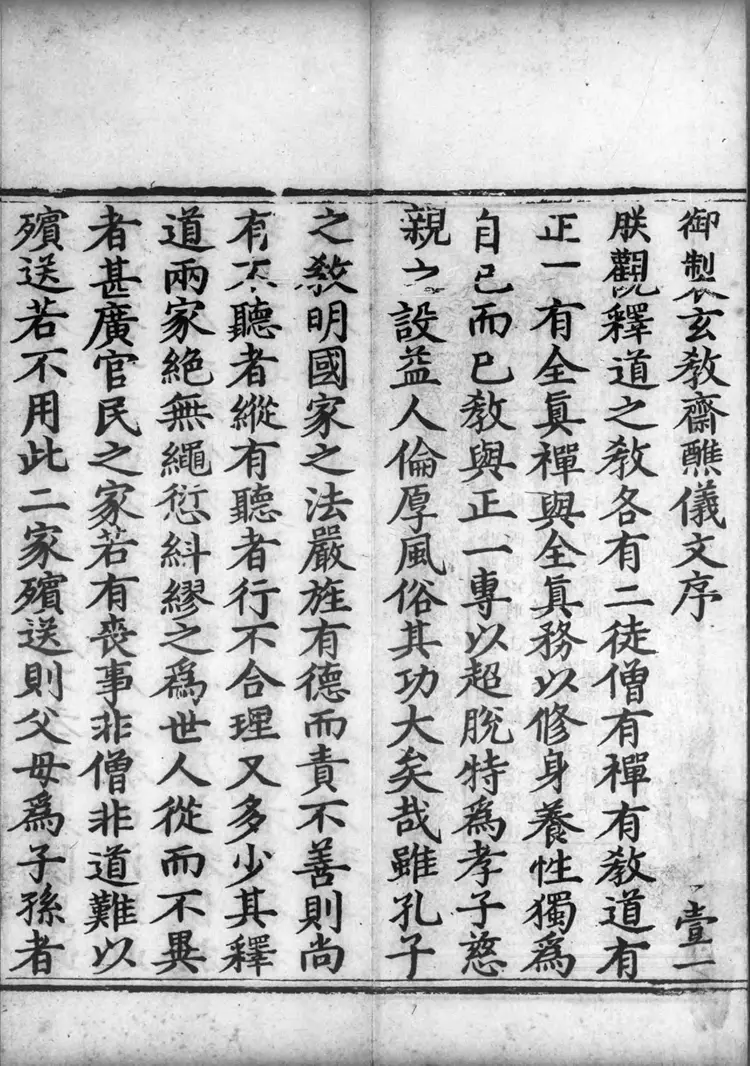 御製玄教齋醮儀文序
壹一
朕觀釋道之教各有二徒僧有禪有教道有
正一有全眞禪與全眞務以修身養性獨爲
自已而已教與正一專以超脫特爲孝子慈
親之設益人倫厚風俗其功大矣哉雖孔子
之教明國家之法嚴旌有德而責不善則尚
有不聽者縱有聽者行不合理又多少其釋
道兩家絕無繩愆糾繆之爲世人從而不異
者甚廣官民之家若有喪事非僧非道難以
殯送若不用此二家殯送則父母爲子孫者